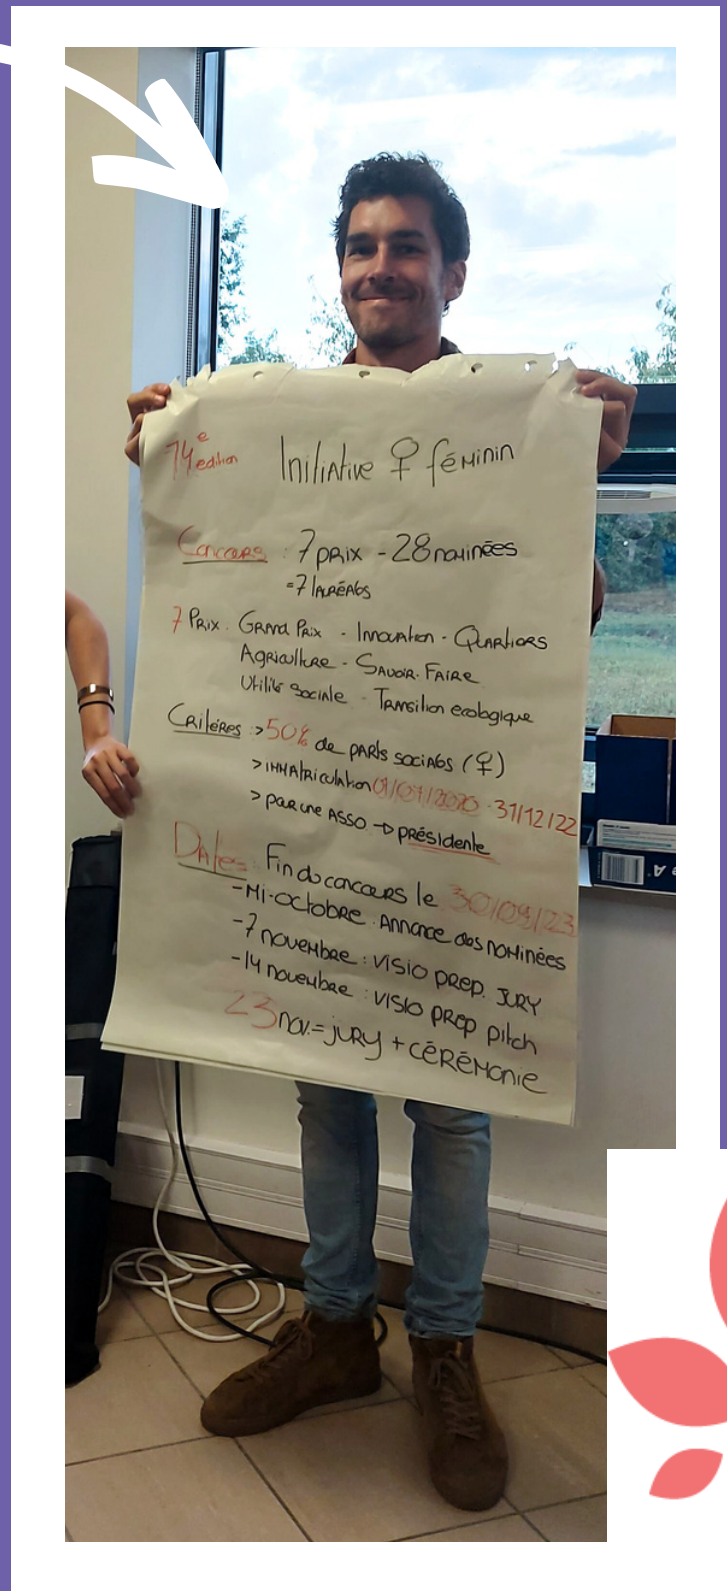 14e edition Initiative ♀ féminin
Concours : 7 prix - 28 nominées
= 7 lauréats
7 Prix : Grand Prix - Innovation - Quartiers
Agriculture - Savoir-Faire
Utilité sociale - Transition ecologique
Critères : > 50% de parts sociales (♀)
> immatriculation 01/07/2020 - 31/12/22
> par une asso → présidente
Dates : Fin du concours le 30/09/23
- Mi-octobre : Annonce des nominées
- 7 novembre : visio prep. jury
- 14 novembre : visio prep pitch
23 nov. = jury + cérémonie